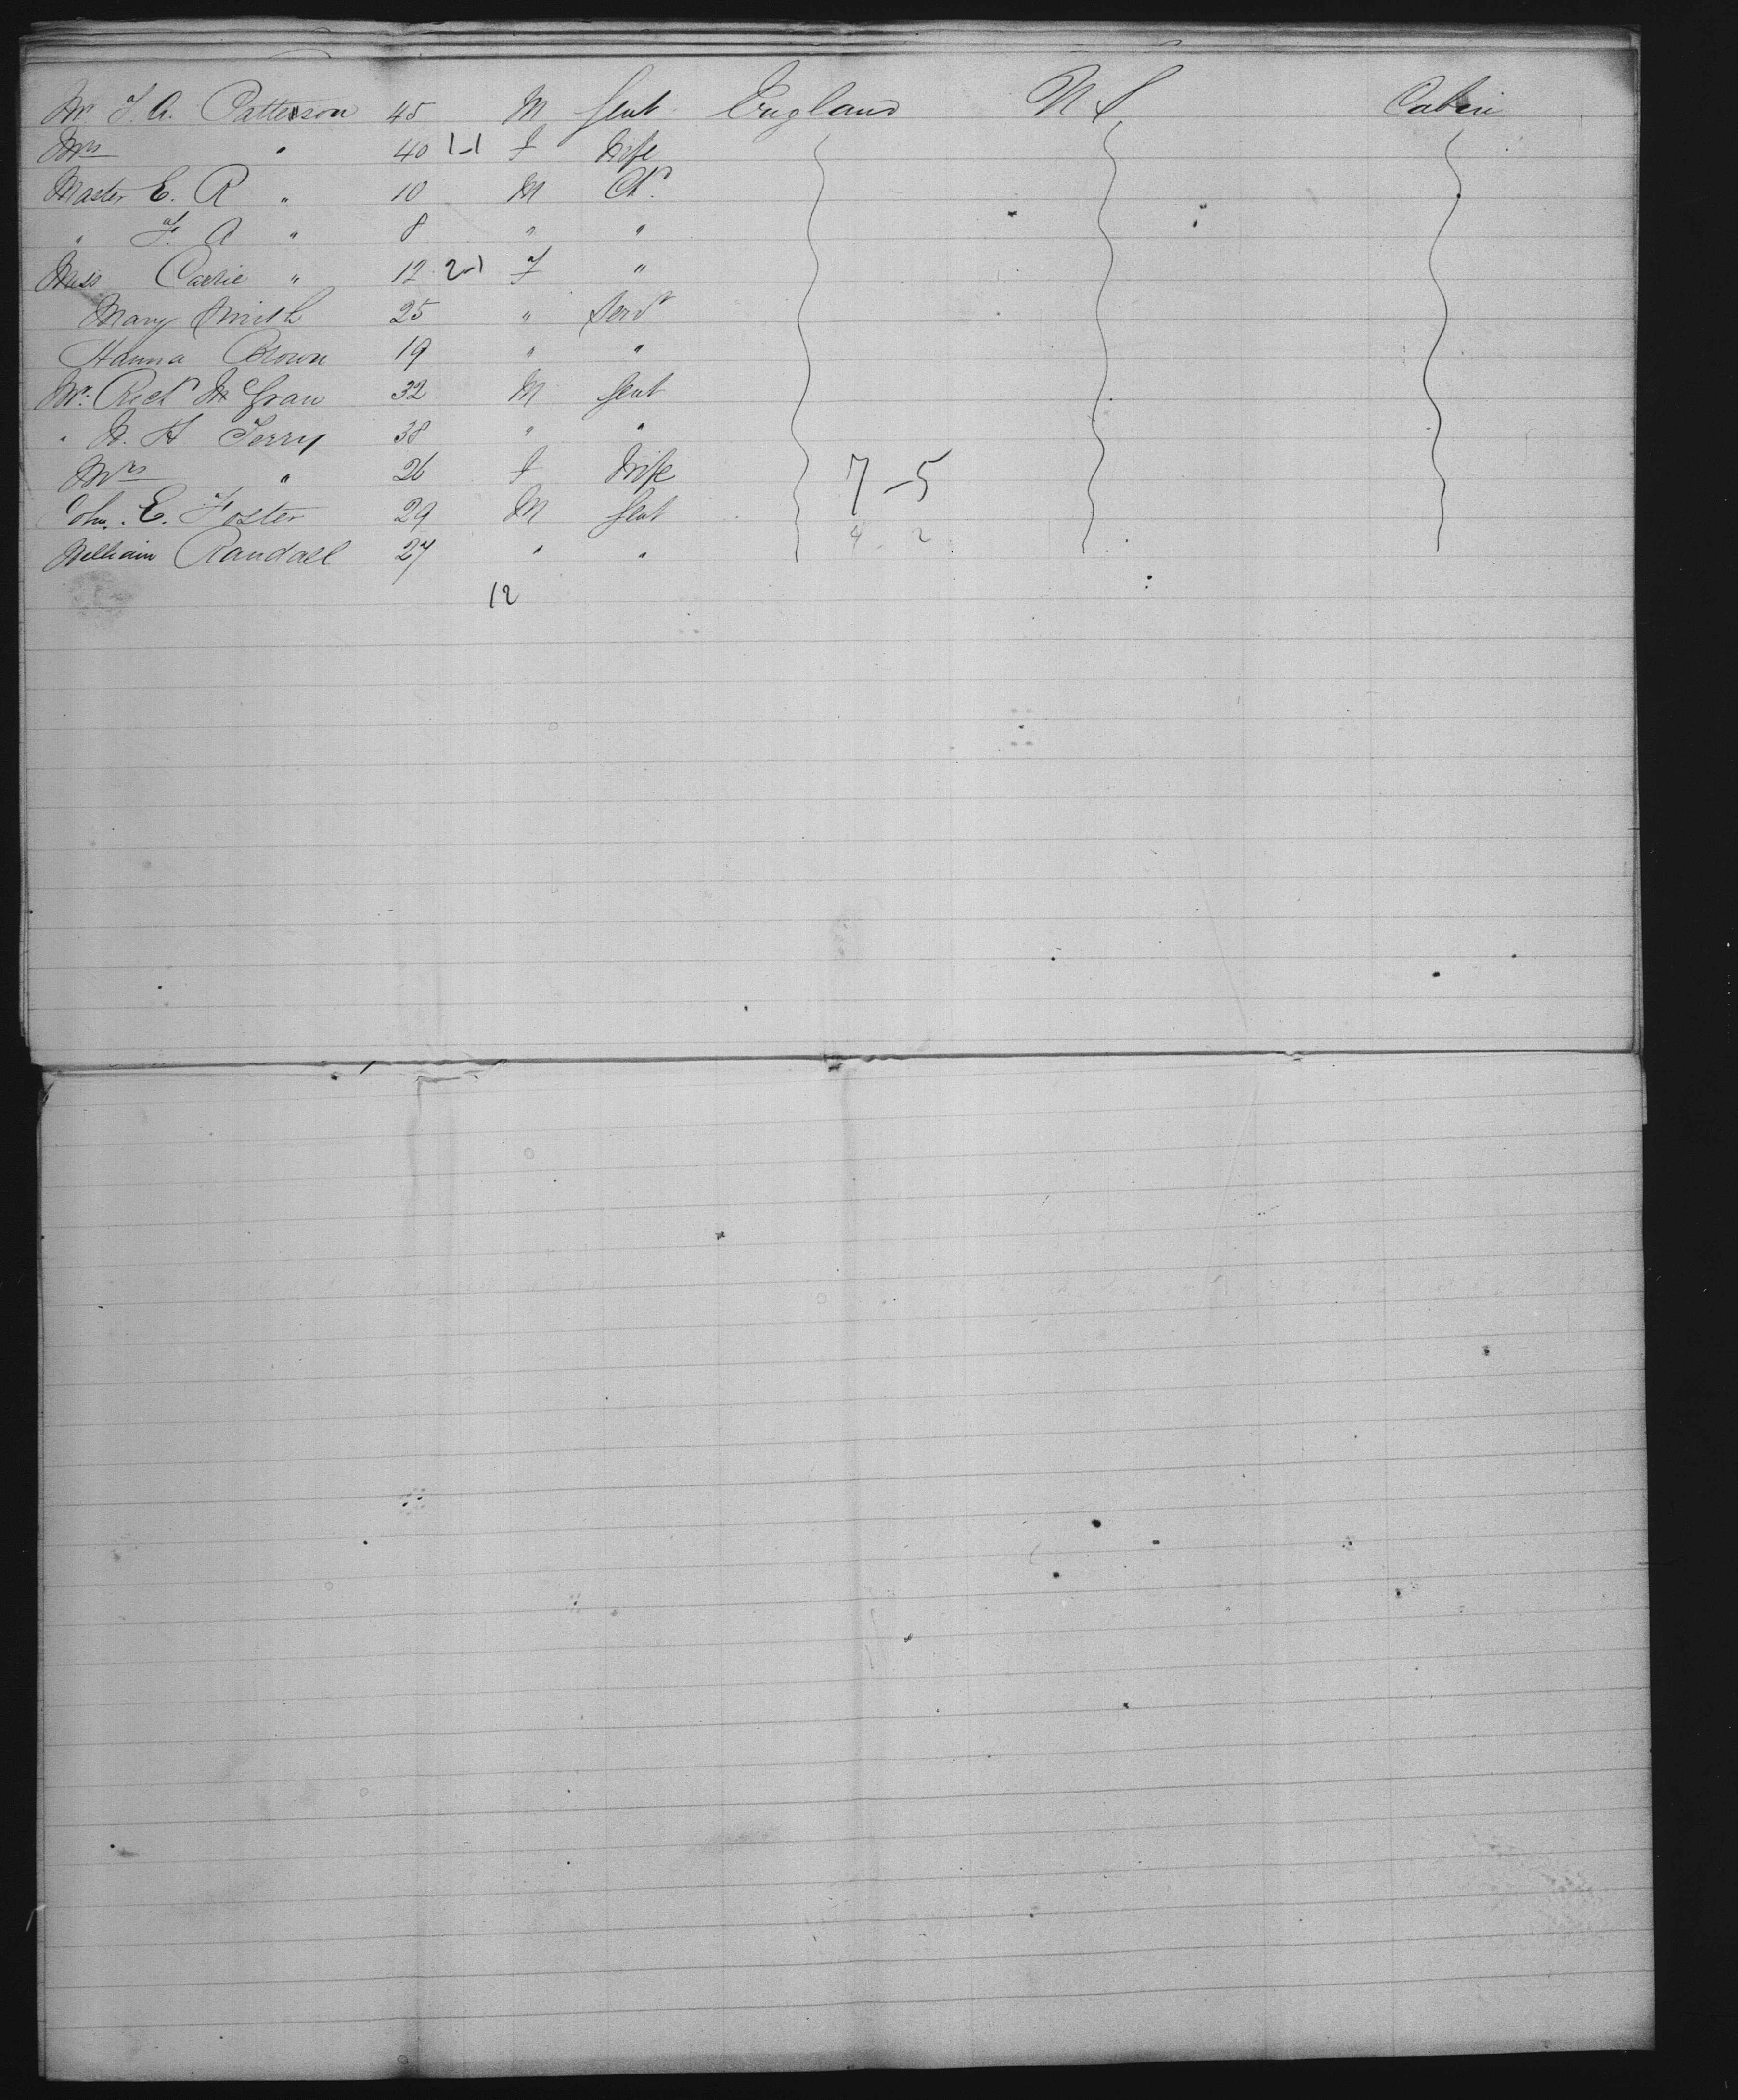 Mr. J. A. Patterson 45 M Gent England U S Cabin
Mrs " 40 1-1 F Wife
Master E. R " 10 M Chd.
" F. A " 8 " "
Miss Carrie " 12 2-1 F "
Mary Smith 25 " Servt
Hanna Brown 19 " "
Mr. Richd McGrau 32 M Gent
" R. H Terry 38 " "
Mrs " 26 F Wife 7-5
John. E. Foster 29 M Gent 4-2
William Randall 27 " "
12